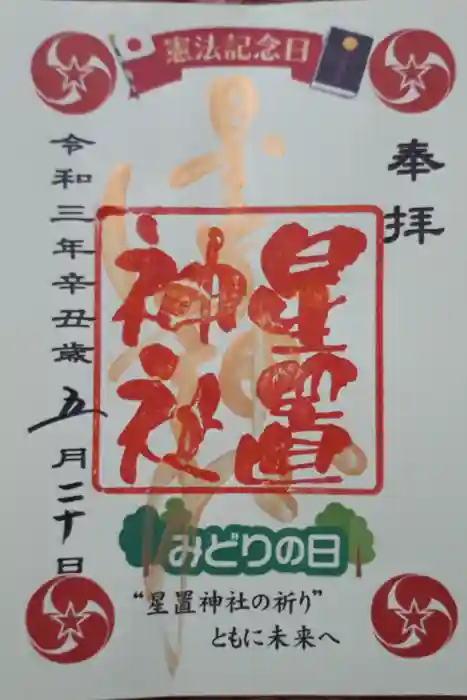 憲法記念日
奉拝
星置
神社
令和三年辛丑歳五月二十日
みどりの日
“星置神社の祈り”
ともに未来へ